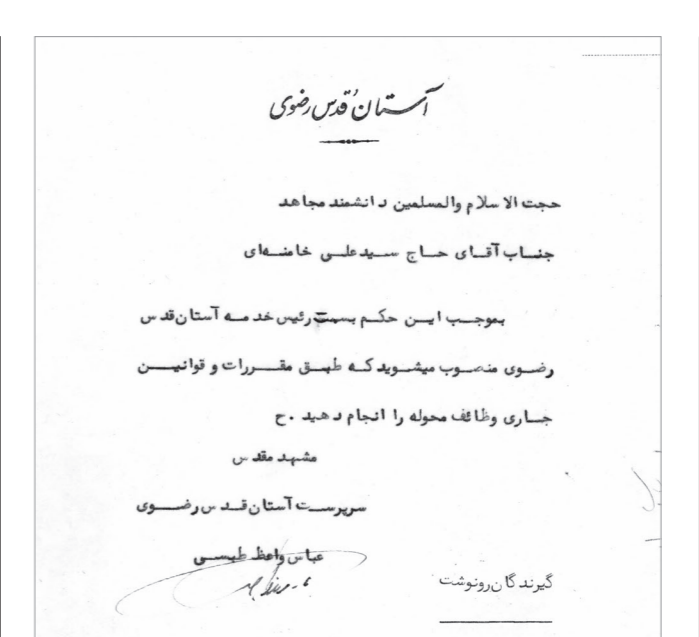 آستان قدس رضوی
حجت الاسلام والمسلمین دانشمند مجاهد
جناب آقای حاج سیدعلی خامنه‌ای
بموجب این حکم بسمت رئیس خدمه آستان قدس
رضوی منصوب میشوید که طبق مقررات و قوانین
جاری وظائف محوله را انجام دهید .ح
مشهد مقدس
سرپرست آستان قدس رضوی
عباس واعظ طبسی
گیرندگان رونوشت